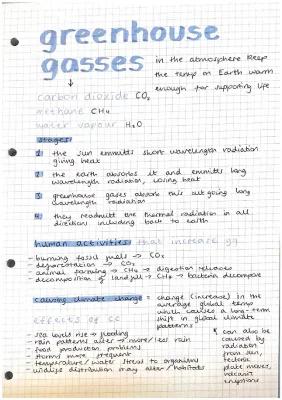 greenhouse
gasses
in the atmosphere keep
the temp on Earth warm
enough for supporting life
carbon dioxide CO₂
methane CH₄
water vapour H₂O
stages:
1 the sun emmitts short wavelength radiation
giving heat
2 the earth absorbs it and emmitts long
wavelength radiation, losing heat
3 greenhouse gases absorb this out going long
wavelength radiation
4 they readmitt the thermal radiation in all
directions including back to earth
human activities that increase gg
- burning fossil fuels → CO₂
- deforestation → CO₂
- animal farming → CH₄ → digestion releases
- decomposition of landfill → CH₄ → bacteria decompose
causing climate change = change (increase) in the
average global temp
which causes a long-term
shift in global climate
patterns
effects of cc
- sea levels rise → flooding
- rain patterns alter → more/less rain
- food production problems
- storms more frequent
- temperature/water stress to organisms
- wildlife distribution may alter/habitats
can also be
caused by
radiation
from sun,
tectonic
plate moves,
volcanic
eruptions